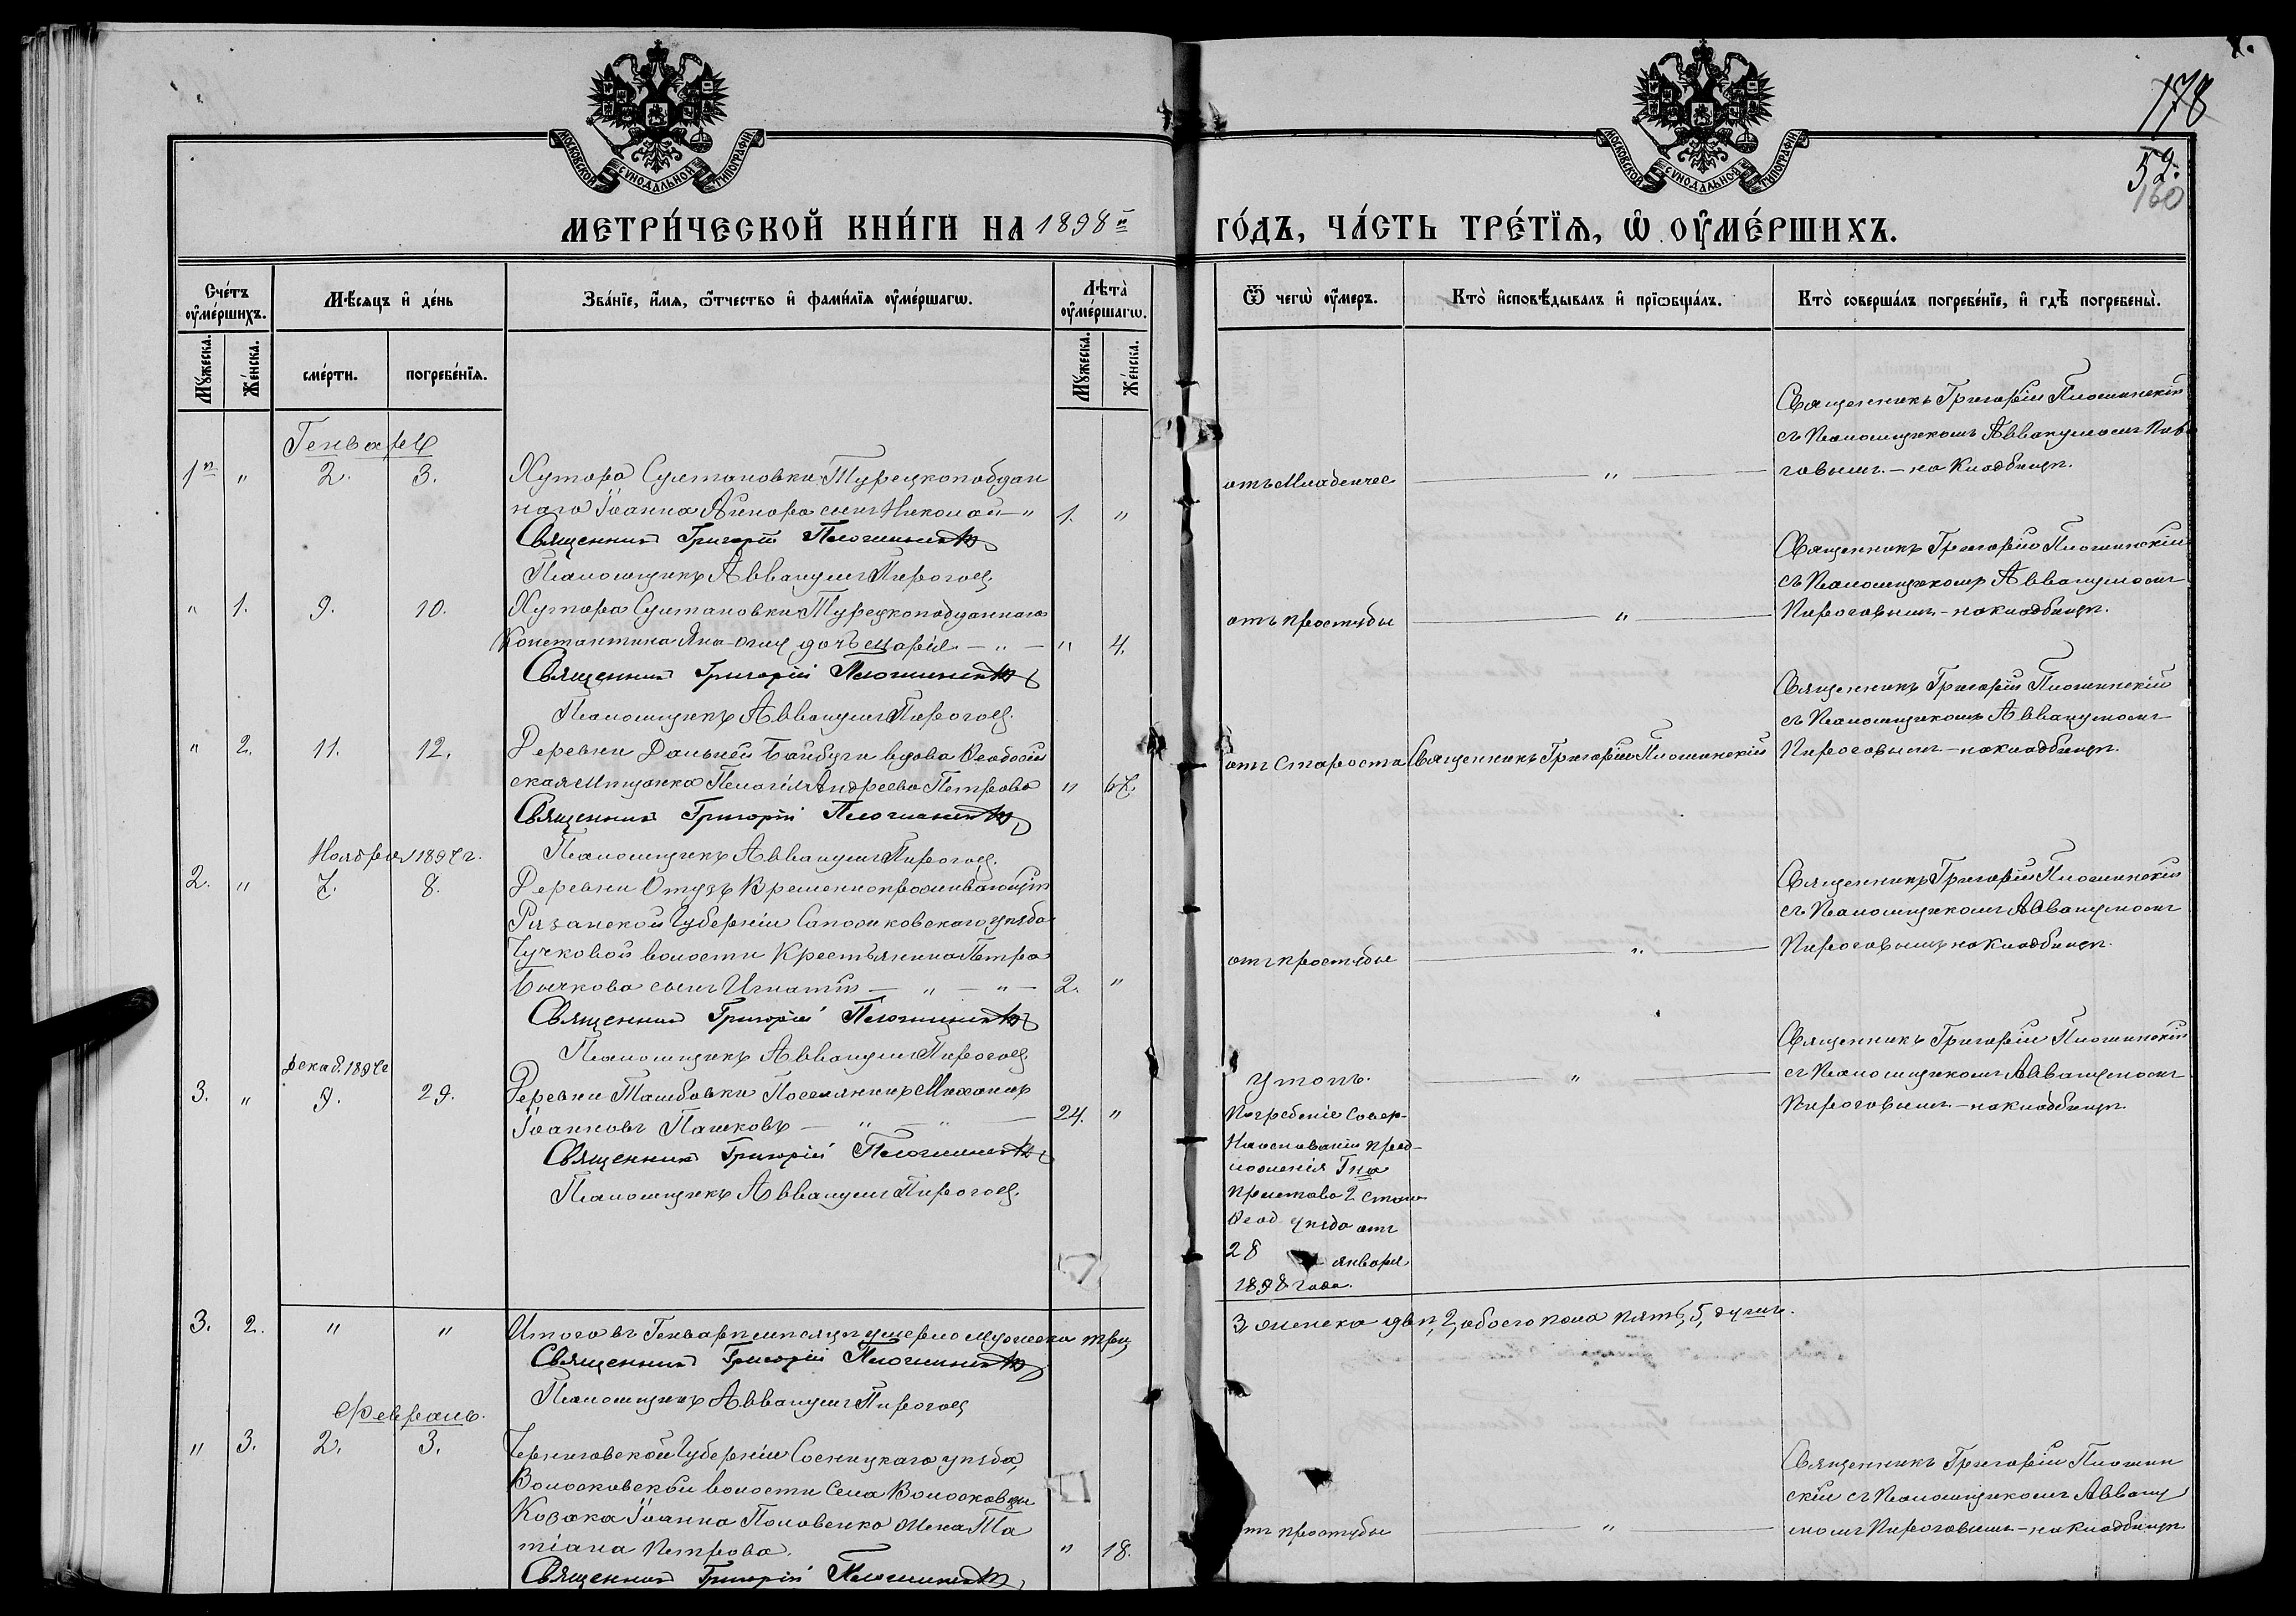 МОСКОВСКОЙ СѴНОДАЛЬНОЙ ТИПОГРАФІИ
МОСКОВСКОЙ СѴНОДАЛЬНОЙ ТИПОГРАФІИ
178
59.
160
МЕТРИ́ЧЕСКОЙ КНИ́ГИ НА 1898й ГО́ДЪ, ЧА́СТЬ ТРЕ́ТЇѦ, Ѡ ОУМЕ́РШИХЪ.
Сче́тъ оумéршихъ.
Мѣ́сяцъ и де́нь
Зва́нїе, и́мя, ѿтчество и фами́лїя оумéршагѡ.
Лѣта̀ оумéршагѡ.
Ѿ чегѡ̀ оу́меръ.
Кто̀ исповѣ́дывалъ и прїѡбща́лъ.
Кто̀ соверша́лъ погребе́нїе, и гдѣ̀ погребены̀.
Му́жеска.
Же́нска.
сме́рти.
погребе́нїя.
Му́жеска.
Же́нска.
Генварь
1й " 2. 3. Хутора Султановки Турецкоподдан
наго Іоанна сынъ Николай — " 1. "
Священникъ Григорій Плошинскій
Псаломщикъ Аввакумъ Пироговъ.
отъ Младенчес — " —
Священникъ Григорій Плошинскій
съ Псаломщикомъ Аввакумомъ Пиро
говымъ. — на кладбищѣ.
" 1. 9. 10. Хутора Султановки Турецкоподданнаго
Константина дочь Марія — " — " 4.
Священникъ Григорій Плошинскій
Псаломщикъ Аввакумъ Пироговъ.
отъ простуды — " —
Священникъ Григорій Плошинскій
съ Псаломщикомъ Аввакумомъ
Пироговымъ — на кладбищѣ.
" 2. 11. 12. Деревни Дальней Байбуги вдова Ѳеодосій
ская Мѣщанка Пелагія Андреева Петрова " 67.
Священникъ Григорій Плошинскій
Псаломщикъ Аввакумъ Пироговъ.
отъ Старости Священникъ Григорій Плошинскій
Священникъ Григорій Плошинскій
съ Псаломщикомъ Аввакумомъ
Пироговымъ — на кладбищѣ.
Ноября 1897 г.
2. " 7. 8. Деревни Отузъ Временнопроживающій
Рязанской Губерніи Сапожковскаго уѣзда
Чучковой волости Крестьянина Петра
Бычкова сынъ Игнатій — " — " — 2. "
Священникъ Григорій Плошинскій
Псаломщикъ Аввакумъ Пироговъ
отъ простуды — " —
Священникъ Григорій Плошинскій
съ Псаломщикомъ Аввакумомъ
Пироговымъ на кладбищѣ.
Декаб. 1897 г
3. " 9. 29. Деревни Ташбовки Поселянинъ Михаилъ
Іоанновъ Пашковъ — " — " — 24. "
Священникъ Григорій Плошинскій
Псаломщикъ Аввакумъ Пироговъ.
утопъ. — " —
Погребеніе совер-
На основаніи пред-
ложенія Гна
пристава 2 стана
Ѳеод. уѣзда отъ
28 января
1898 года.
Священникъ Григорій Плошинскій
съ Псаломщикомъ Аввакумомъ
Пироговымъ — на кладбищѣ.
3. 2. " " Итого въ Генварѣ мѣсяцѣ умерло мужеска три, 3, женска двѣ, 2, обоего пола пять, 5, душъ.
Священникъ Григорій Плошинскій
Псаломщикъ Аввакумъ Пироговъ
Февраль.
" 3. 2. 3. Черниговской Губерніи Сосницкаго уѣзда,
Волосковской волости Села Волосковцы
Козака Іоанна Половенко жена Та
тіана Петрова. " 18.
Священникъ Григорій Плошинскій
отъ простуды — " —
Священникъ Григорій Плошин
скій съ Псаломщикомъ Авваку
момъ Пироговымъ — на кладбищѣ